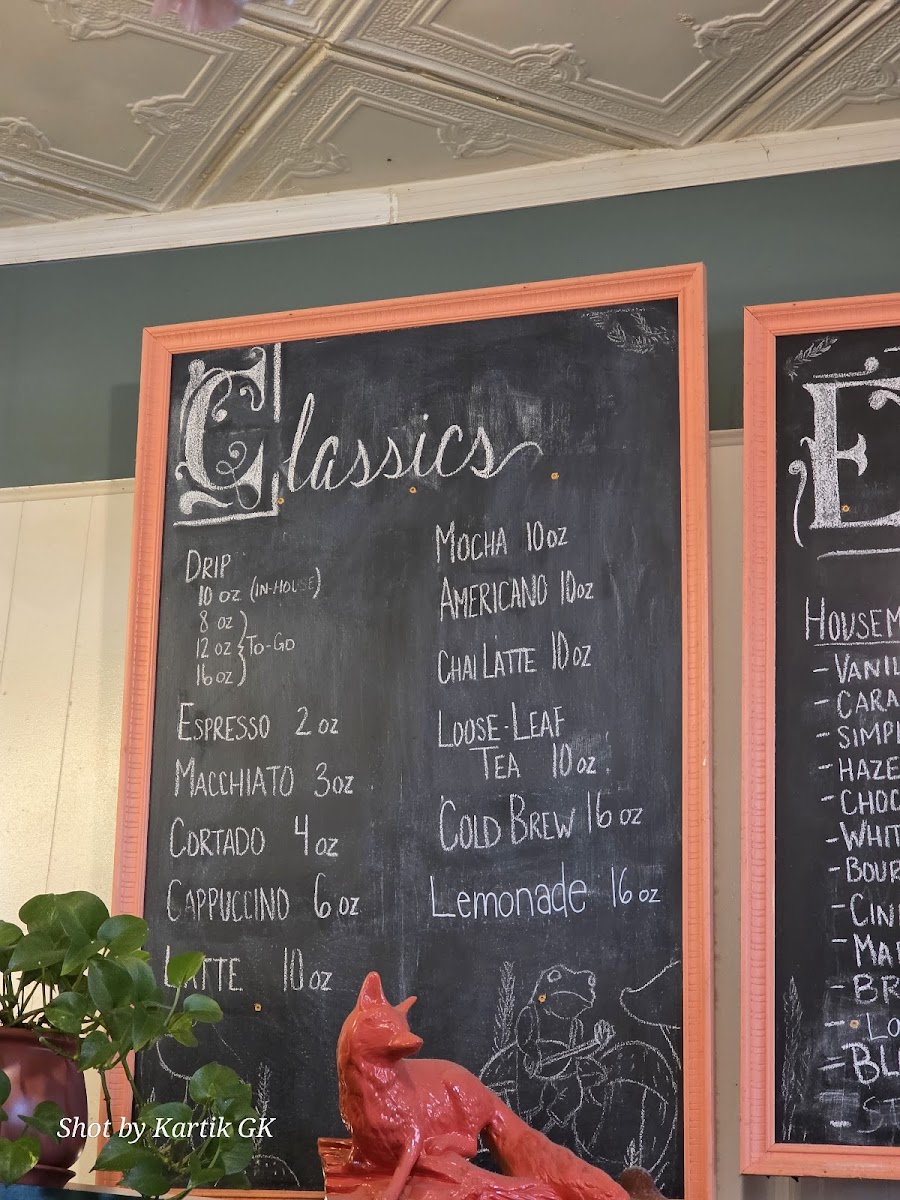 Classics
DRIP
10 oz (IN-HOUSE)
8 oz
12 oz
16 oz
TO-GO
ESPRESSO 2 oz
MACCHIATO 3 oz
CORTADO 4 oz
CAPPUCCINO 6 oz
LATTE 10 oz
MOCHA 10 oz
AMERICANO 10 oz
CHAI LATTE 10 oz
LOOSE-LEAF
TEA 10 oz
COLD BREW 16 oz
Lemonade 16 oz
E
HOUSEM
- VANIL
- CARA
- SIMPL
- HAZE
- CHOC
- WHIT
- BOUR
- CIN
- MA
- BR
- LO
- BL
- ST
Shot by Kartik GK